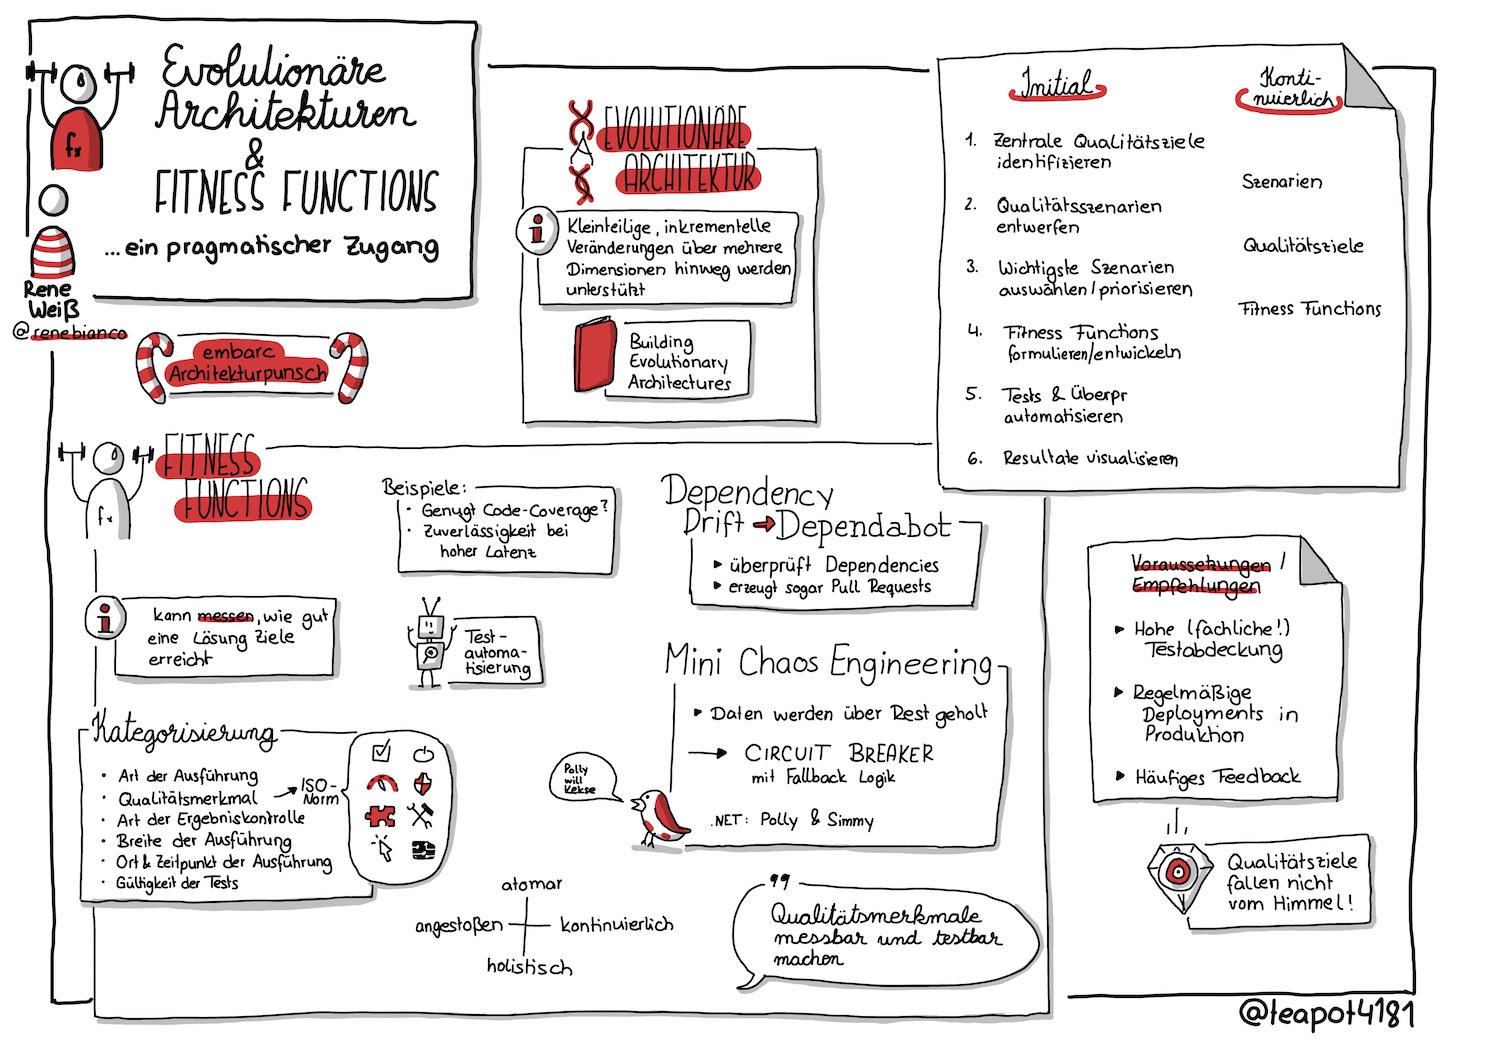 Evolutionäre
Architekturen
&
FITNESS FUNCTIONS
...ein pragmatischer Zugang
fx
Rene
Weiß
@renebianco
embarc
Architekturpunsch
EVOLUTIONÄRE
ARCHITEKTUR
i
Kleinteilige, inkrementelle
Veränderungen über mehrere
Dimensionen hinweg werden
unterstützt
Building
Evolutionary
Architectures
Initial
1. Zentrale Qualitätsziele
identifizieren
2. Qualitätsszenarien
entwerfen
3. Wichtigste Szenarien
auswählen/priorisieren
4. Fitness Functions
formulieren/entwickeln
5. Tests & Überpr
automatisieren
6. Resultate visualisieren
Konti-
nuierlich
Szenarien
Qualitätsziele
Fitness Functions
FITNESS
FUNCTIONS
fx
i
kann messen, wie gut
eine Lösung Ziele
erreicht
Beispiele:
• Genügt Code-Coverage?
• Zuverlässigkeit bei
hoher Latenz
Test-
automa-
tisierung
Kategorisierung
• Art der Ausführung
• Qualitätsmerkmal → ISO-
Norm
• Art der Ergebniskontrolle
• Breite der Ausführung
• Ort & Zeitpunkt der Ausführung
• Gültigkeit der Tests
atomar
angestoßen
kontinuierlich
holistisch
Dependency
Drift → Dependabot
▸ überprüft Dependencies
▸ erzeugt sogar Pull Requests
Mini Chaos Engineering
▸ Daten werden über Rest geholt
→ CIRCUIT BREAKER
mit Fallback Logik
.NET: Polly & Simmy
Polly
will
Kekse
Qualitätsmerkmale
messbar und testbar
machen
Voraussetzungen /
Empfehlungen
▸ Hohe (fachliche!)
Testabdeckung
▸ Regelmäßige
Deployments in
Produktion
▸ Häufiges Feedback
Qualitätsziele
fallen nicht
vom Himmel!
@teapot4181